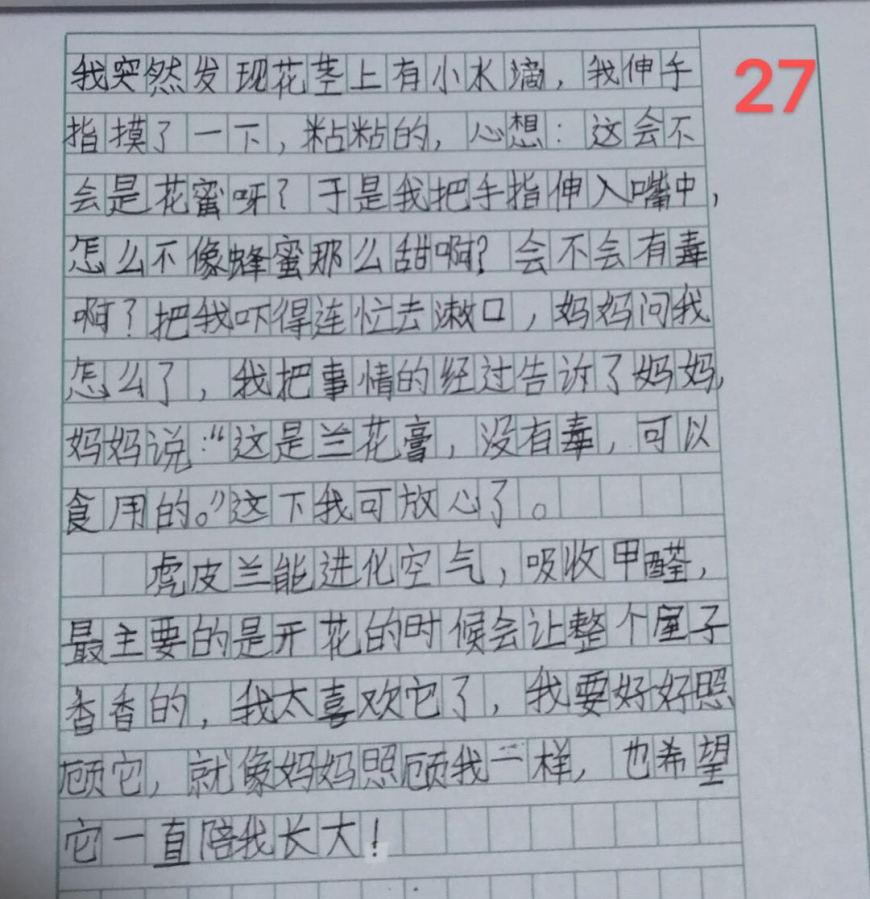 我突然发现花茎上有小水滴，我伸手
27
指摸了一下，粘粘的，心想：这会不
会是花蜜呀？于是我把手指伸入嘴中，
怎么不像蜂蜜那么甜啊？会不会有毒
啊？把我吓得连忙去漱口，妈妈问我
怎么了，我把事情的经过告诉了妈妈，
妈妈说：“这是兰花膏，没有毒，可以
食用的。”这下我可放心了。
虎皮兰能进化空气，吸收甲醛，
最主要的是开花的时候会让整个屋子
香香的，我太喜欢它了，我要好好照
顾它，就像妈妈照顾我一样，也希望
它一直陪我长大！